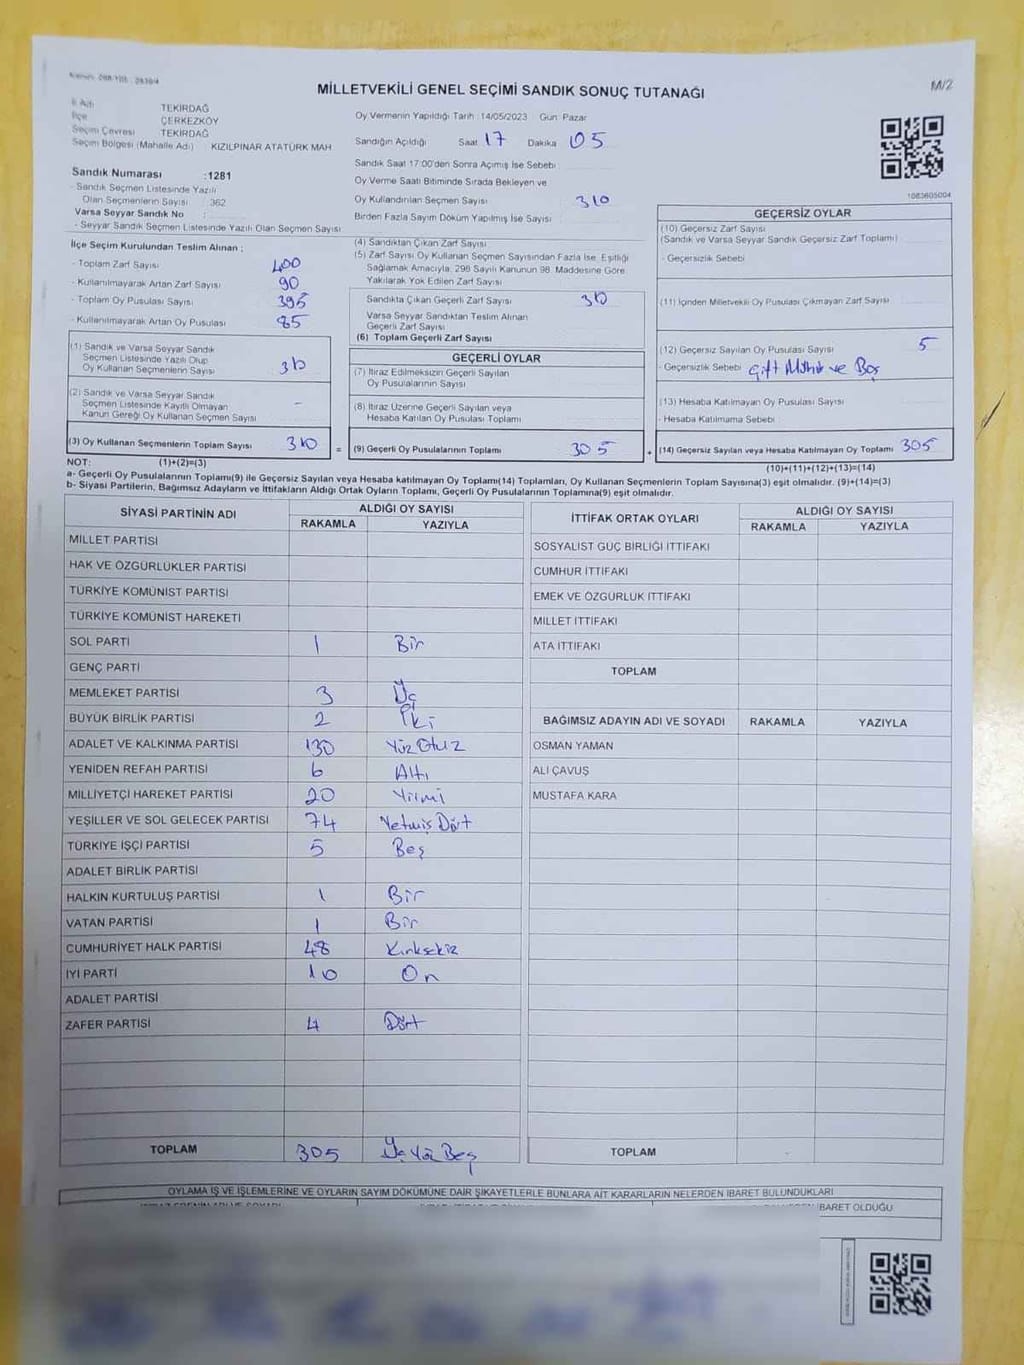 M/2
MİLLETVEKİLİ GENEL SEÇİMİ SANDIK SONUÇ TUTANAĞI
İl Adı TEKİRDAĞ
İlçe ÇERKEZKÖY
Seçim Çevresi TEKİRDAĞ
Seçim Bölgesi (Mahalle Adı) KIZILPINAR ATATÜRK MAH
Oy Vermenin Yapıldığı Tarih 14/05/2023 Gün Pazar
Sandığın Açıldığı Saat 17 Dakika 05
Sandık Saat 17:00'den Sonra Açılmış İse Sebebi
Oy Verme Saati Bitiminde Sırada Bekleyen ve
Oy Kullandırılan Seçmen Sayısı 310
Birden Fazla Sayım Döküm Yapılmış İse Sayısı
1083605004
Sandık Numarası :1281
- Sandık Seçmen Listesinde Yazılı
Olan Seçmenlerin Sayısı : 362
Varsa Seyyar Sandık No :
- Seyyar Sandık Seçmen Listesinde Yazılı Olan Seçmen Sayısı
İlçe Seçim Kurulundan Teslim Alınan ;
- Toplam Zarf Sayısı 400
- Kullanılmayarak Artan Zarf Sayısı 90
- Toplam Oy Pusulası Sayısı 395
- Kullanılmayarak Artan Oy Pusulası 85
(1) Sandık ve Varsa Seyyar Sandık
Seçmen Listesinde Yazılı Olup
Oy Kullanan Seçmenlerin Sayısı 310
(2) Sandık ve Varsa Seyyar Sandık
Seçmen Listesinde Kayıtlı Olmayan
Kanun Gereği Oy Kullanan Seçmen Sayısı -
(3) Oy Kullanan Seçmenlerin Toplam Sayısı 310 =
(4) Sandıktan Çıkan Zarf Sayısı
(5) Zarf Sayısı Oy Kullanan Seçmen Sayısından Fazla İse, Eşitliği
Sağlamak Amacıyla, 298 Sayılı Kanunun 98. Maddesine Göre
Yakılarak Yok Edilen Zarf Sayısı
Sandıkta Çıkan Geçerli Zarf Sayısı 310
Varsa Seyyar Sandıktan Teslim Alınan
Geçerli Zarf Sayısı
(6) Toplam Geçerli Zarf Sayısı
GEÇERLİ OYLAR
(7) İtiraz Edilmeksizin Geçerli Sayılan
Oy Pusulalarının Sayısı
(8) İtiraz Üzerine Geçerli Sayılan veya
Hesaba Katılan Oy Pusulası Toplamı
(9) Geçerli Oy Pusulalarının Toplamı 305 +
GEÇERSİZ OYLAR
(10) Geçersiz Zarf Sayısı
(Sandık ve Varsa Seyyar Sandık Geçersiz Zarf Toplamı)
- Geçersizlik Sebebi
(11) İçinden Milletvekili Oy Pusulası Çıkmayan Zarf Sayısı
(12) Geçersiz Sayılan Oy Pusulası Sayısı 5
- Geçersizlik Sebebi Çift Mühür ve Boş
(13) Hesaba Katılmayan Oy Pusulası Sayısı
- Hesaba Katılmama Sebebi
(14) Geçersiz Sayılan veya Hesaba Katılmayan Oy Toplamı 305
NOT: (1)+(2)=(3) (10)+(11)+(12)+(13)=(14)
a- Geçerli Oy Pusulalarının Toplamı(9) ile Geçersiz Sayılan veya Hesaba katılmayan Oy Toplamı(14) Toplamları, Oy Kullanan Seçmenlerin Toplam Sayısına(3) eşit olmalıdır. (9)+(14)=(3)
b- Siyasi Partilerin, Bağımsız Adayların ve İttifakların Aldığı Ortak Oyların Toplamı, Geçerli Oy Pusulalarının Toplamına(9) eşit olmalıdır.
SİYASİ PARTİNİN ADI ALDIĞI OY SAYISI
RAKAMLA YAZIYLA
MİLLET PARTİSİ
HAK VE ÖZGÜRLÜKLER PARTİSİ
TÜRKİYE KOMÜNİST PARTİSİ
TÜRKİYE KOMÜNİST HAREKETİ
SOL PARTİ 1 Bir
GENÇ PARTİ
MEMLEKET PARTİSİ 3 Üç
BÜYÜK BİRLİK PARTİSİ 2 İki
ADALET VE KALKINMA PARTİSİ 130 Yüz Otuz
YENİDEN REFAH PARTİSİ 6 Altı
MİLLİYETÇİ HAREKET PARTİSİ 20 Yirmi
YEŞİLLER VE SOL GELECEK PARTİSİ 74 Yetmiş Dört
TÜRKİYE İŞÇİ PARTİSİ 5 Beş
ADALET BİRLİK PARTİSİ
HALKIN KURTULUŞ PARTİSİ 1 Bir
VATAN PARTİSİ 1 Bir
CUMHURİYET HALK PARTİSİ 48 Kırksekiz
İYİ PARTİ 10 On
ADALET PARTİSİ
ZAFER PARTİSİ 4 Dört
TOPLAM 305 Üç Yüz Beş
İTTİFAK ORTAK OYLARI ALDIĞI OY SAYISI
RAKAMLA YAZIYLA
SOSYALİST GÜÇ BİRLİĞİ İTTİFAKI
CUMHUR İTTİFAKI
EMEK VE ÖZGÜRLÜK İTTİFAKI
MİLLET İTTİFAKI
ATA İTTİFAKI
TOPLAM
BAĞIMSIZ ADAYIN ADI VE SOYADI RAKAMLA YAZIYLA
OSMAN YAMAN
ALİ ÇAVUŞ
MUSTAFA KARA
TOPLAM
OYLAMA İŞ VE İŞLEMLERİNE VE OYLARIN SAYIM DÖKÜMÜNE DAİR ŞİKAYETLERLE BUNLARA AİT KARARLARIN NELERDEN İBARET BULUNDUKLARI
İBARET OLDUĞU